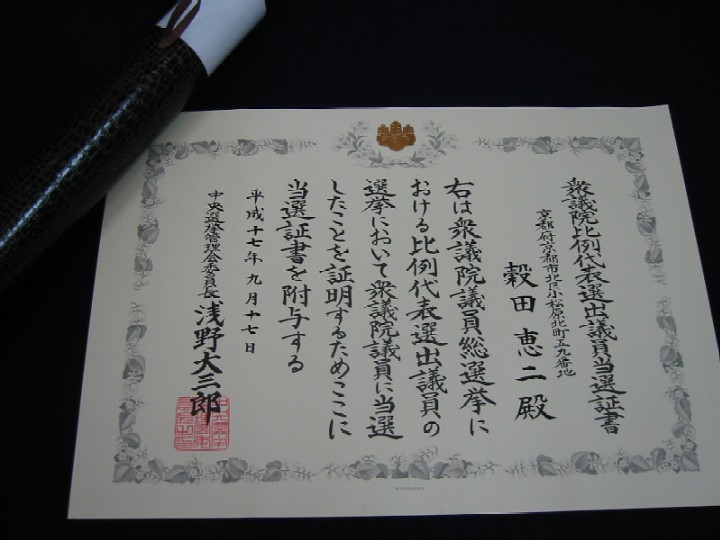 衆議院比例代表選出議員当選証書
京都府京都市北区小松原北町五九番地
穀田恵二殿
右は衆議院議員総選挙に
おける比例代表選出議員の
選挙において衆議院議員に当選
したことを証明するためここに
当選証書を附与する
平成十七年九月十七日
中央選挙管理会委員長 浅野大三郎